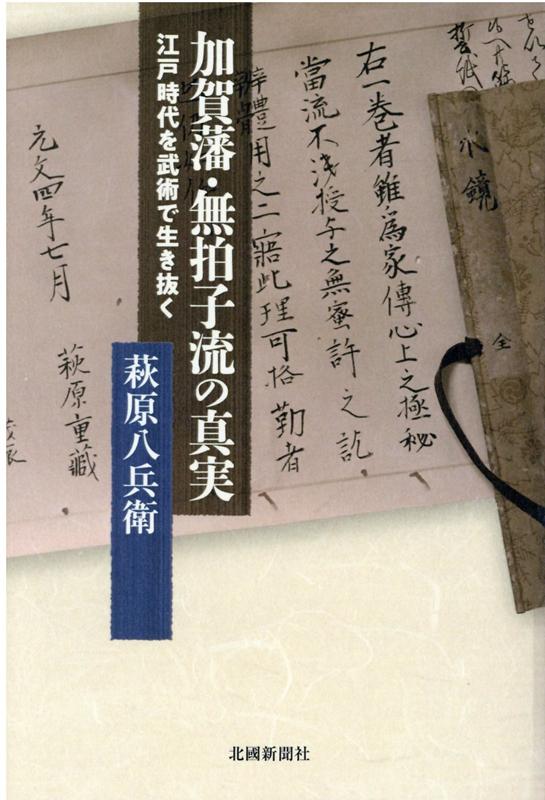 加賀藩・無拍子流の真実
江戸時代を武術で生き抜く
萩原八兵衛
水鏡
全
右一巻者雖為家傳心上之極秘
當流不浅授与之無蜜許之訖
辨體用之二寤此理可格勤者
元文四年七月
萩原重藏
北國新聞社